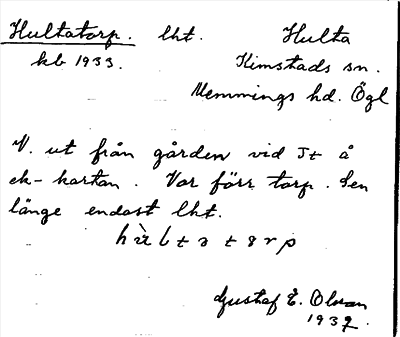 Hultatorp. lht. Hulta
kb 1933. Kimstads sn.
Memmings hd. Ögl
V. ut från gården vid J t å
ek-kartan. Var förr torp. Sen
länge endast lht.
Gustaf E. Olson
1932.